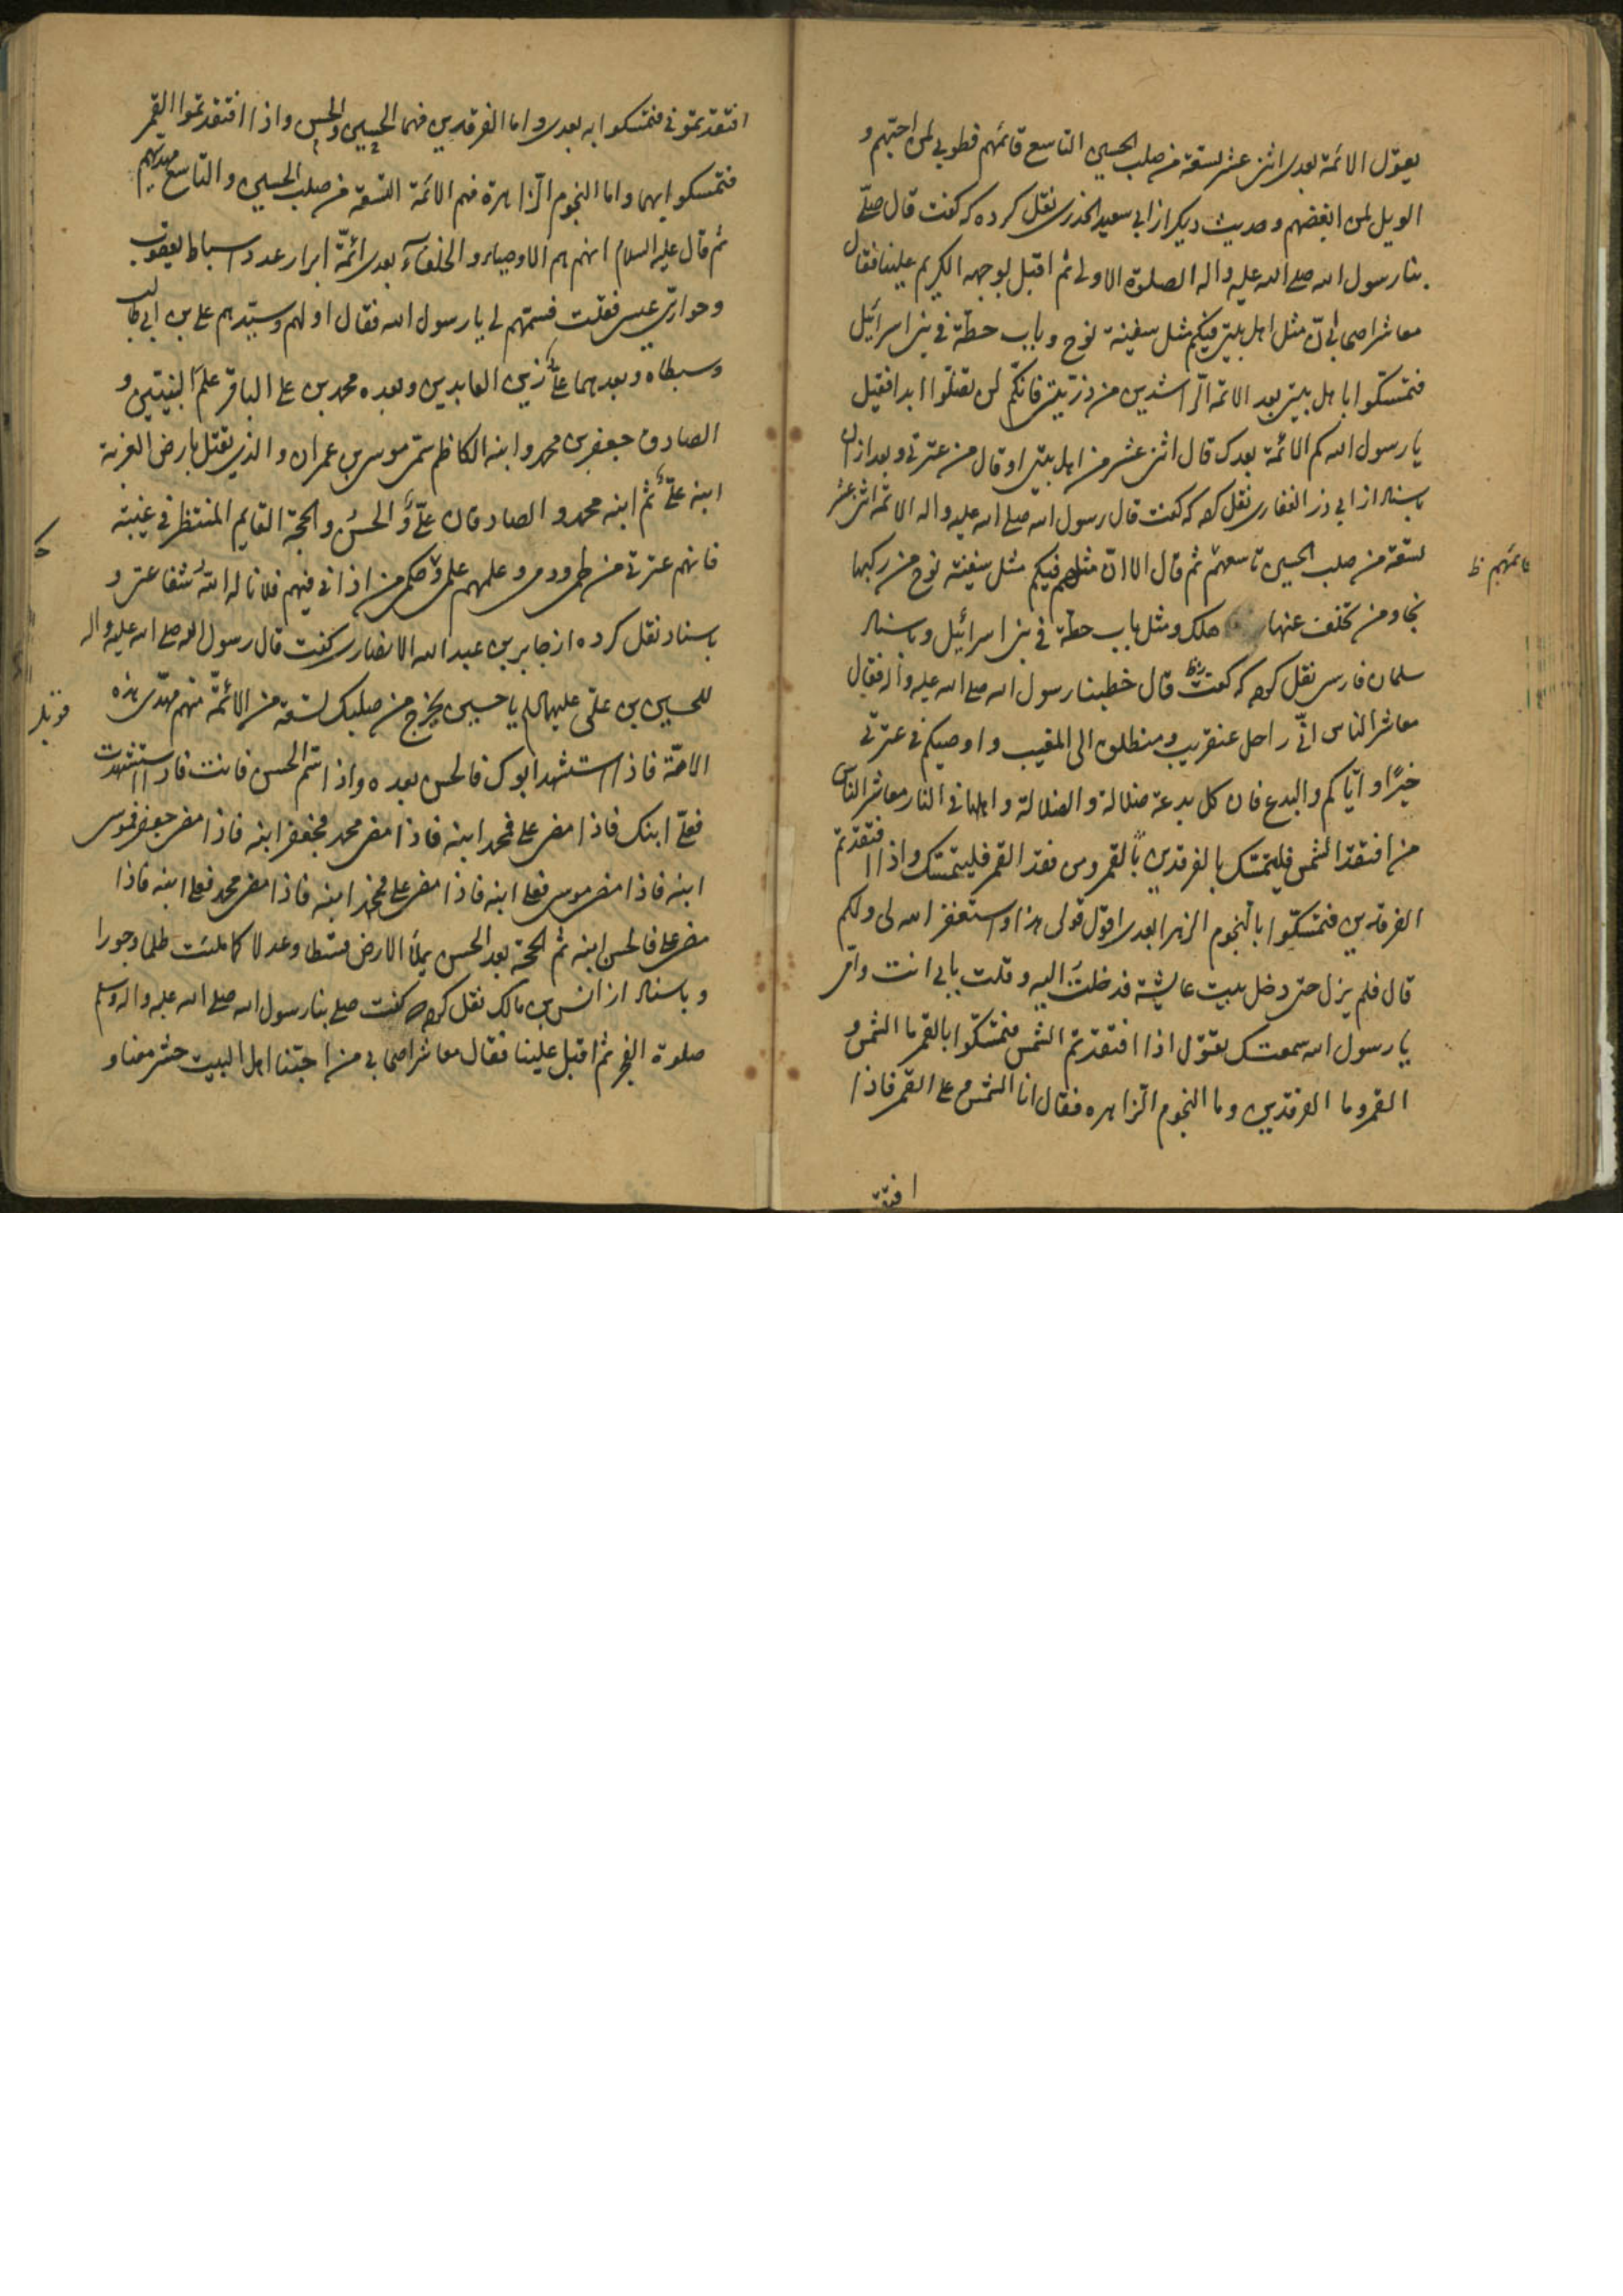 يقول الائمة بعدى اثنى عشر تسعة من صلب الحسين التاسع قائمهم فطوبى لمن احبهم و
الويل لمن ابغضهم و حديث ديكر از ابي سعيد الخدرى نقل كرده كه كفت قال صلّى
بنا رسول الله صلى الله عليه و اله الصلوة الاولى ثم اقبل بوجهه الكريم علينا فقال
معاشر اصحابى انّ مثل اهل بيتى فيكم مثل سفينة نوح و باب حطّة فى بنى اسرائيل
فتمسّكوا باهل بيتى بعد الائمة الرّاشدين من ذرّيتى فانكم لن تضلّوا ابدا فقيل
يا رسول الله كم الائمّة بعدك قال اثنى عشر من اهل بيتى او قال من عترتى و بعد ازان
باسناد از ابى ذر الغفارى نقل كرده كه كفت قال رسول الله صلى الله عليه و اله الائمة اثنى عشر
تسعة من صلب الحسين تاسعهم ثم قال الا انّ مثلهم فيكم مثل سفينة نوح من ركبها
قائمهم ظ
نجا و من تخلف عنها هلك و مثل باب حطة فى بنى اسرائيل و باسناد
سلمان فارسى نقل كرده كه كفت قال خطبنا رسول الله صلى الله عليه و اله فقال
معاشر الناس انّى راحل عنقريب و منطلق الى المغيب و اوصيكم فى عترتى
خيرًا و ايّاكم و البدع فان كل بدعة ضلالة و الضلالة و اهلها فى النار معاشر الناس
من افتقد الشمس فليتمسّك بالقمر و من فقد القمر فليتمسّك بالفرقدين و اذا افتقدتم
الفرقدين فتمسّكوا بالنجوم الزهرا بعدى اقول قولى هذا و استغفر الله لى و لكم
قال فلم يزل حتى دخل بيت عايشة فدخلت اليه و قلت بابى انت و امى
يا رسول الله سمعتك تقول اذا افتقدتم الشمس فتمسّكوا بالقمر ما الشمس و
القمر و ما الفرقدين و ما النجوم الزاهره فقال انا الشمس و على القمر فاذا
افتقد
افتقدتمونى فتمسكوا به بعدى و اما الفرقدين فهما الحسن و الحسين و اذا افتقدتموا القمر
فتمسكوا بهما و اما النجوم الزاهرة فهم الائمة التسعة من صلب الحسين و التاسع مهديهم
ثم قال عليه السلام انهم هم الاوصياء و الخلفآء بعدى ائمّة ابرار عدد اسباط يعقوب
و حوارى عيسى فقلت فسمّهم لى يا رسول الله فقال اولهم و سيّدهم على بن ابى طالب
و سبطاه و بعدهما علىّ زين العابدين و بعده محمد بن على الباقر علم النبيّين و
الصادق جعفر بن محمد و ابنه الكاظم سمى موسى بن عمران و الذى يقتل بارض الغربة
ابنه علىّ ثم ابنه محمد و الصادقان علىّ و الحسن و الحجة القايم المنتظر فى غيبته
فانهم عترتى من و دمى و علمهم علمى و حكمهم حكمى من اذانى فيهم فلا ناله الله شفاعتى و
باسناد نقل كرده از جابر بن عبد الله الانصارى كفت قال رسول الله صلى الله عليه و اله
للحسين بن على عليهما السلام يا حسين يخرج من صلبك تسعة من الائمّة منهم مهدى هذه
الامّة فاذا استشهد ابوك فالحسن بعده و اذا سم الحسن فانت فاذا استشهدت
فعلىّ ابنك فاذا مضى على فمحمد ابنه فاذا مضى محمد فجعفر ابنه فاذا مضى جعفر فموسى
ابنه فاذا مضى موسى فعلى ابنه فاذا مضى على فمحمد ابنه فاذا مضى محمد فعلى ابنه فاذا
مضى على فالحسن ابنه ثم الحجة بعد الحسن يملأ الارض قسطا و عدلا كما ملئت ظلما و جورا
و باسناد از انس بن مالك نقل كرده كه كفت صلى بنا رسول الله صلى الله عليه و اله و سلم
صلوة الفجر ثم اقبل علينا فقال معاشر اصحابى من احبنا اهل البيت حشر معنا و